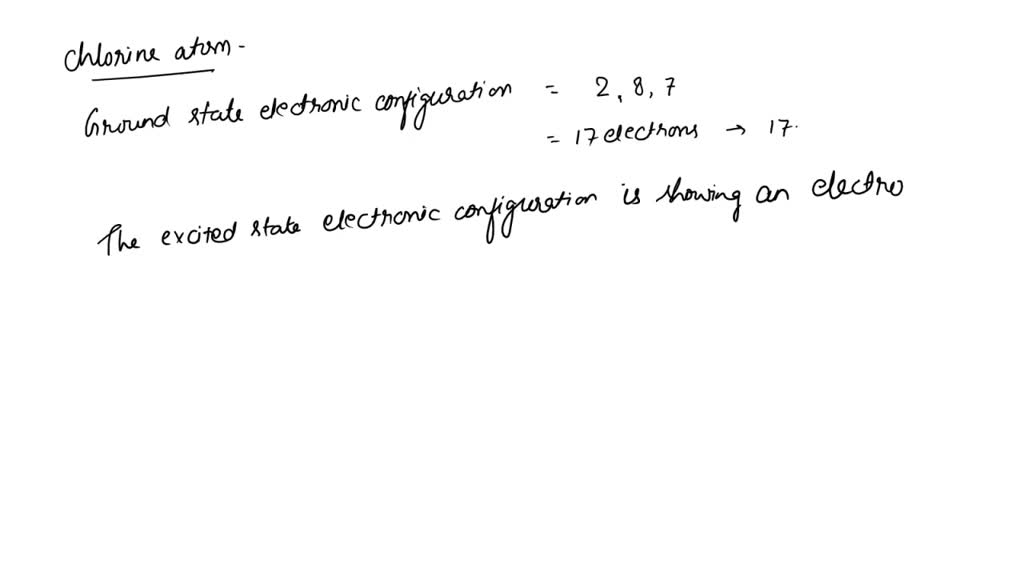 Chlorine atom -
Ground state electronic configuration = 2, 8, 7
= 17 electrons → 17.
The excited state electronic configuration is showing an electro